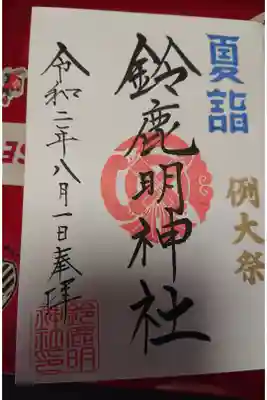 夏詣
例大祭
鈴鹿明神社
令和二年八月一日奉拝
鈴鹿明
神社印